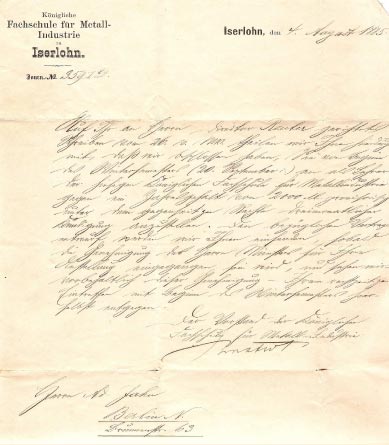 Königliche
Fachschule für Metall-
Industrie
in
Iserlohn.
Iserlohn, den 4. August 18
Journ. №
Auf Ihr an Herrn Direktor gerichtetes
Schreiben vom 26. v. Mts. theilen wir Ihnen hierdurch
mit, daß wir beschlossen haben, Sie von Beginn
des Wintersemesters (20. September) an als Lehrer
der hiesigen Königlichen Fachschule für Metallindustrie
gegen ein Jahresgehalt von 2000 M. provisorisch
unter dem gegenseitigen Rechte dreimonatlicher
Kündigung anzustellen. Der bezügliche Vertrag
werden wir Ihnen einsenden, sobald
die Genehmigung des Herrn Ministers für Ihre
Anstellung eingegangen sein wird, und sehen wir
vorbehaltlich dieser Genehmigung – Ihrem
Eintreffen mit Beginn des Wintersemesters hier-
selbst entgegen.
Der Vorstand der Königlichen
Fachschule für Metall-Industrie
Herrn Ad.
Berlin N.
63